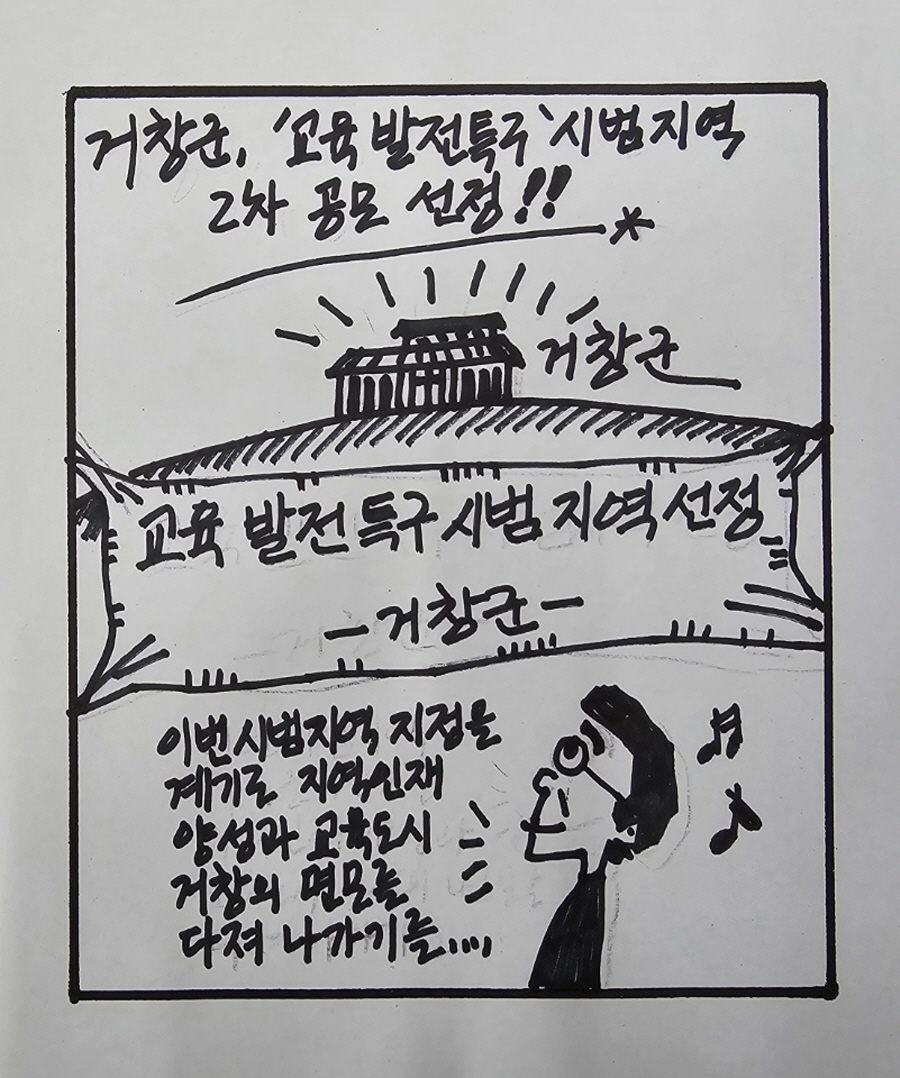 거창군, '교육 발전특구' 시범지역
2차 공모 선정!!
거창군
교육 발전 특구 시범 지역 선정
-거창군-
이번 시범지역 지정을
계기로 지역인재
양성과 교육도시
거창의 면모를
다져 나가기를....